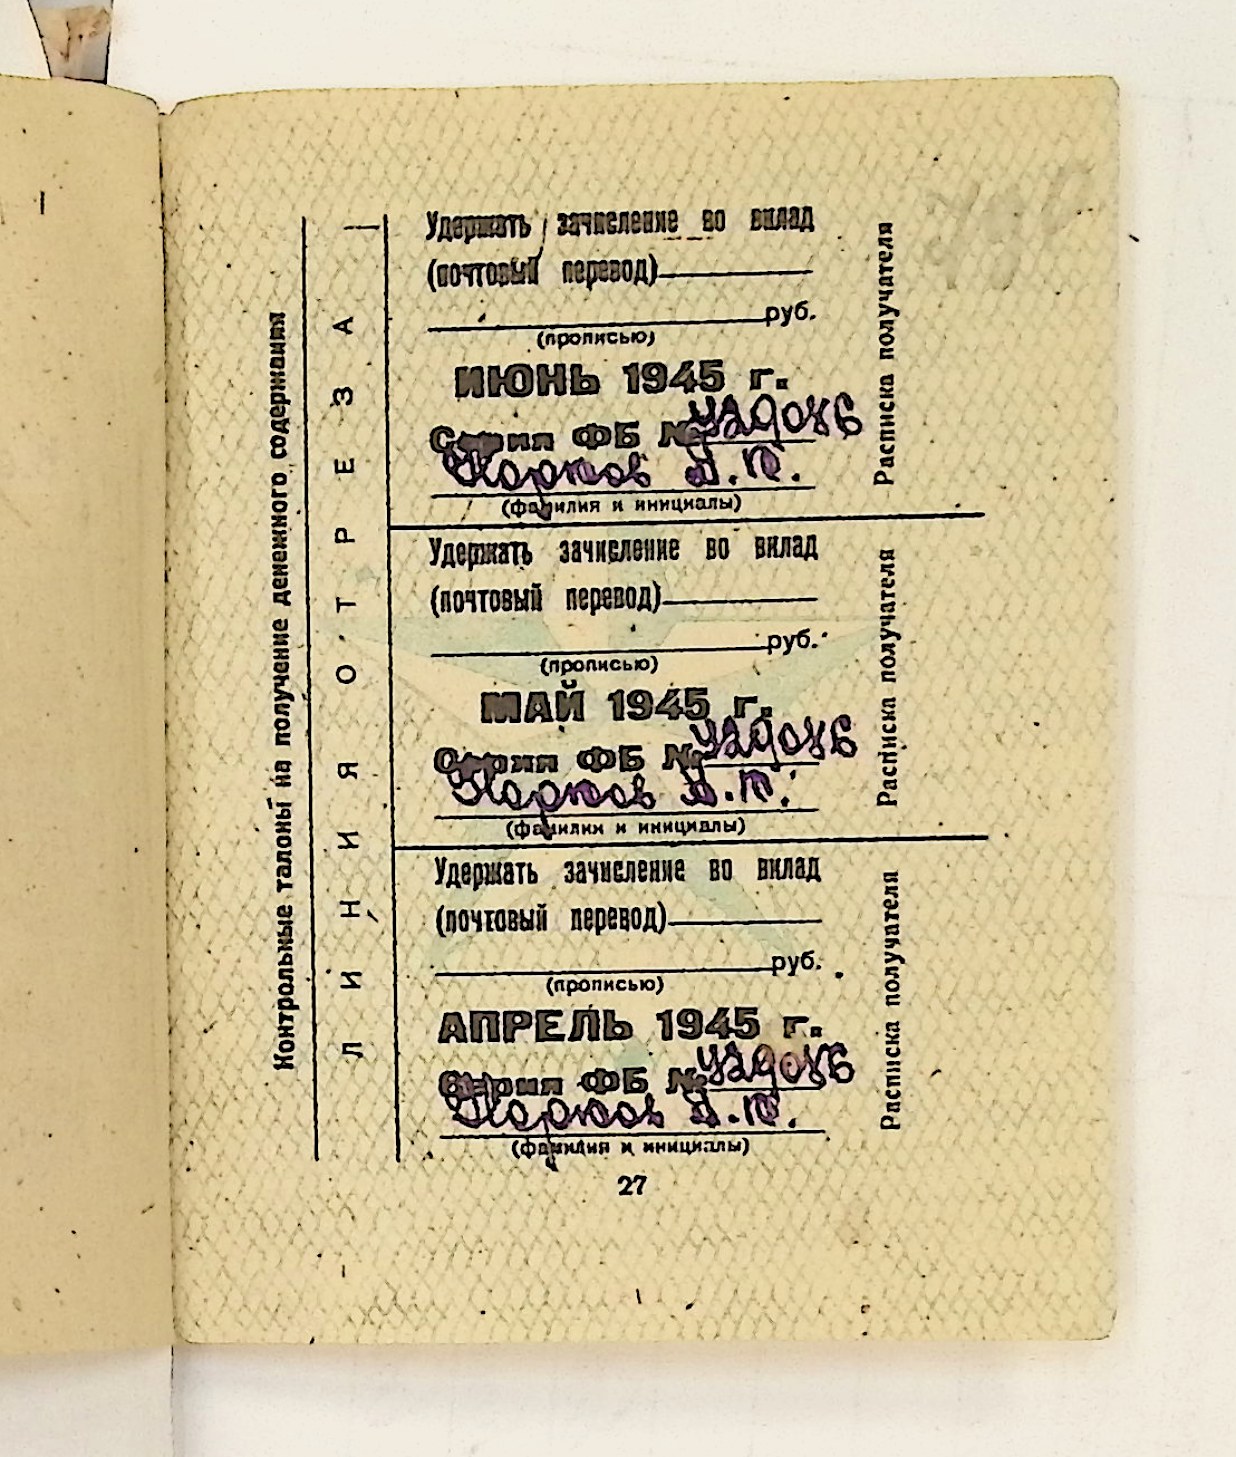 Контрольные талоны на получение денежного содержания
ЛИНИЯ ОТРЕЗА
Удержать зачисление во вклад
(почтовый перевод)
руб.
(прописью)
ИЮНЬ 1945 г.
Серия ФБ №
(фамилия и инициалы)
Расписка получателя
Удержать зачисление во вклад
(почтовый перевод)
руб.
(прописью)
МАЙ 1945 г.
Серия ФБ №
(фамилия и инициалы)
Расписка получателя
Удержать зачисление во вклад
(почтовый перевод)
руб.
(прописью)
АПРЕЛЬ 1945 г.
Серия ФБ №
(фамилия и инициалы)
Расписка получателя
27